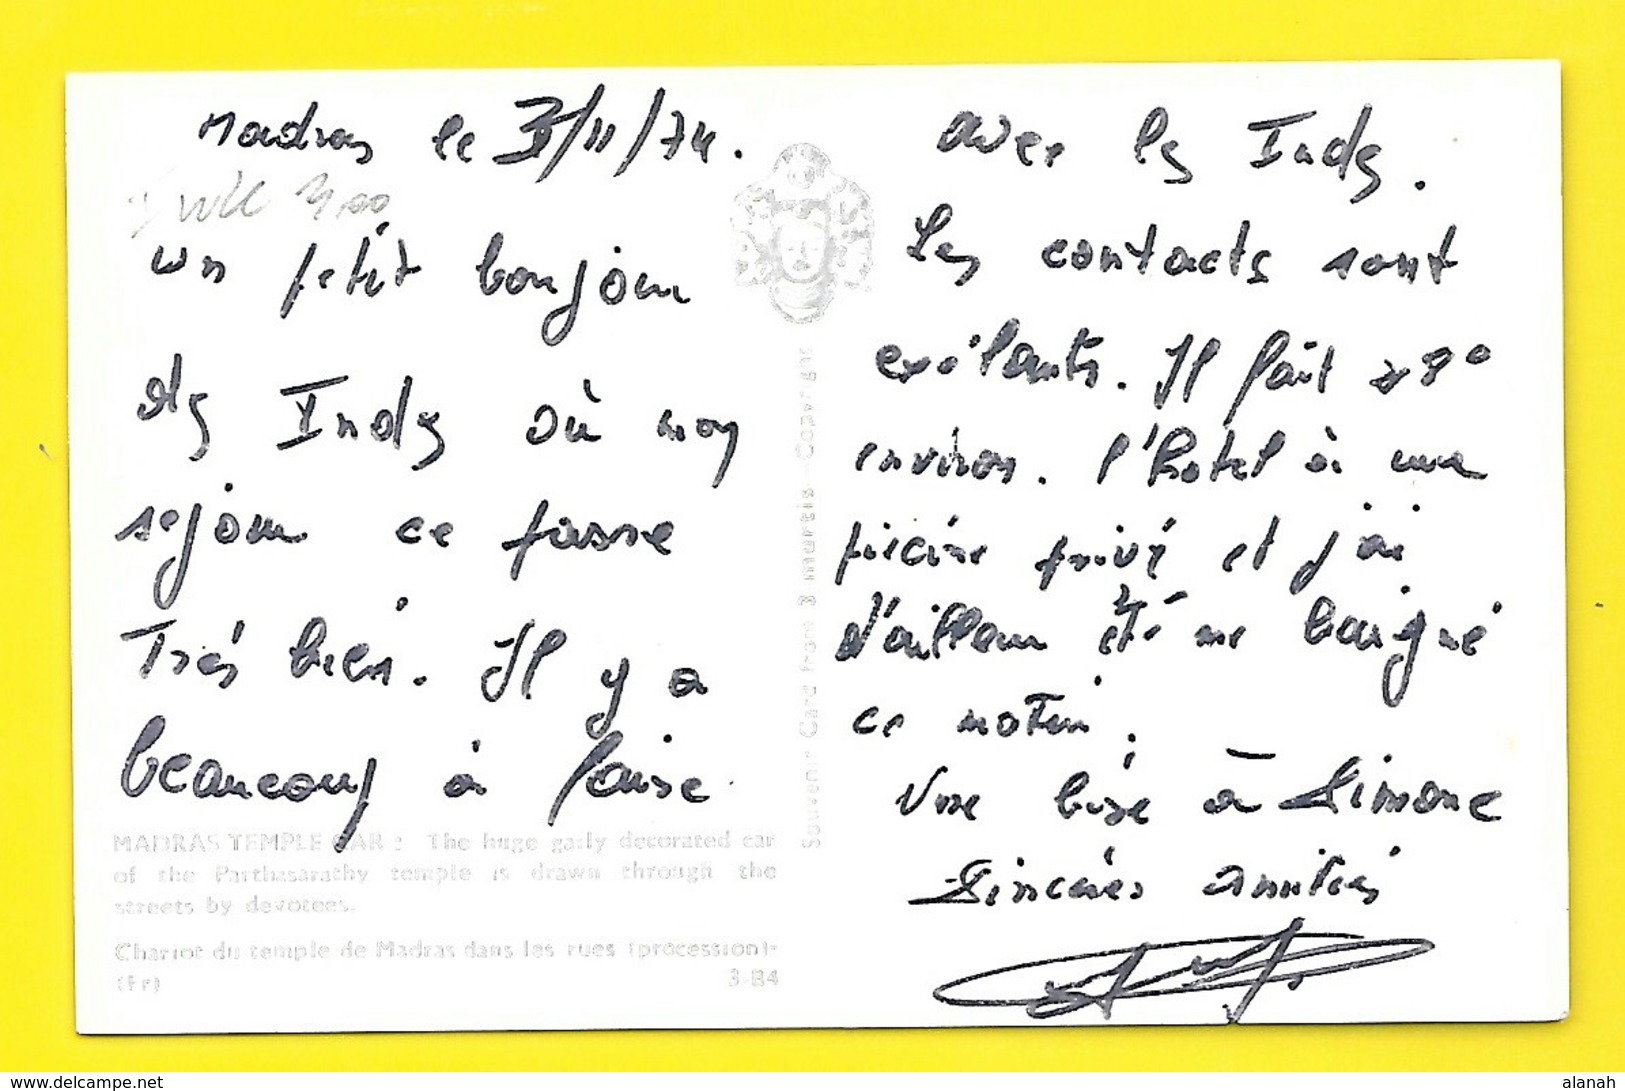 Madras le /11/74.
un petit bonjour
des Indes où mon
sejour ce passe
Très bien. Il y a
beaucoup à faire
MADRAS TEMPLE CAR : The huge gaily decorated car
of the Parthasarathy temple is drawn through the
streets by devotees.
Chariot du temple de Madras dans les rues (procession)-
(Fr) 3-84
Souvenir Card from 3 murtis - Copyright
avec les Indes.
Les contacts sont
exélants. Il fait 28°
environ. l'hotel à une
piscine privé et j'ai
d'ailleur été me baigné
ce matin.
Une bise à Simone
Sincères Amitiés
alanah
www.delcampe.net